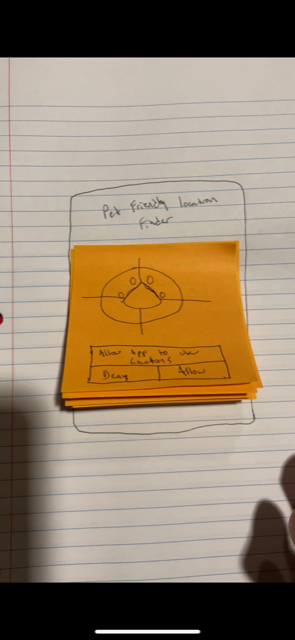 Pet Friendly location
finder
Allow App to use
Locations
Deny
Allow